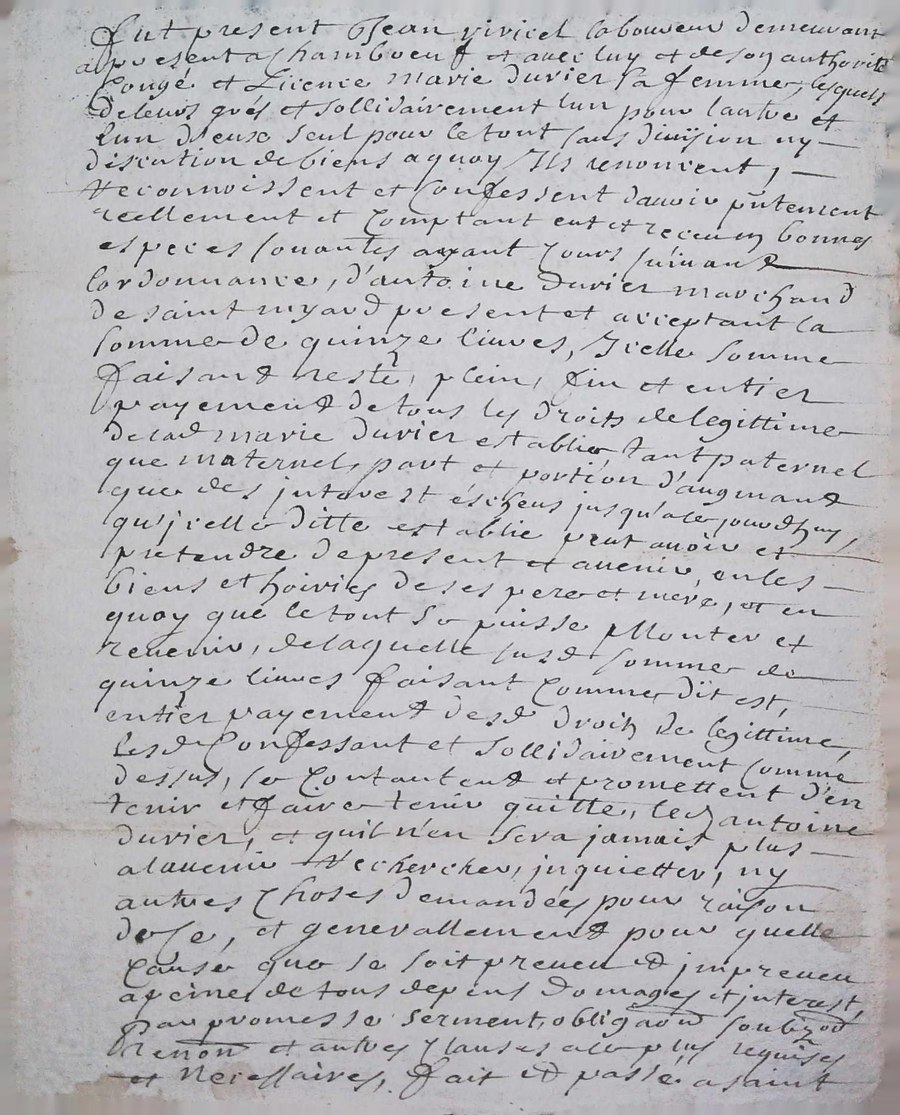 fut present Jean vivicel laboureur demeurant
a present a Chamboeuf et avec luy et de son authorité
Congé et Licence marie durier sa femme, lesquels
de leurs grés et sollidairement lun pour lautre et
lun deux seul pour le tout sans division ny
discution de biens a quoy Ils renoncent,
Reconnoissent et Confessent davoir pntement
reellement et Comptant eut et receu en bonnes
especes sonantes ayant Cours suivant
lordonnance, d'antoine durier marchand
de saint myard present et acceptant la
somme de quinze livres, Icelle somme
faisant reste, plein, fin et entier
payement de tous les droits de legittime
de lad marie durier establie, tant paternel
que maternel, part et portion d'augmant
que des interest éscheus jusqu'ale jourdhuy,
qu'jcelle ditte establie peut avoir et
pretendre de present et avenir, en les
biens et hoiries de ses pere et mere, et en
quoy que le tout se puisse Monter et
revenir, de laquelle susd somme de
quinze livres faisant Comme dit est,
entier payement desd droits de legittime,
lesd Confessant et sollidairement comme
dessus, se Contantent et promettent d'en
tenir et faire tenir quitte, led antoine
durier, et quil n'en sera jamais plus
a lavenir Rechercher, jnquietter, ny
autres Choses demandées pour raison
de Ce, et generallement pour quelle
Cause que se soit preveu et jmpreveu
a peine de tous depens domages et interest,
Par promesse serment, obligaon soubz
Renon et autres Clauses ale plus requises
et Necessaires, fait et passé a saint